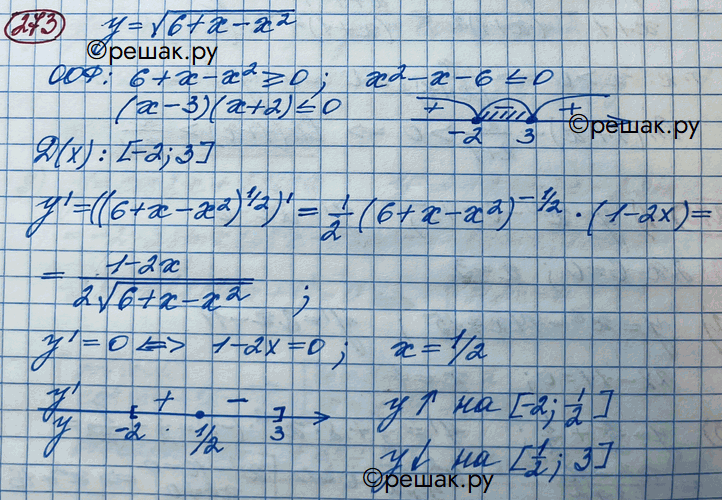 273 y=√(6+x-x²)
©решак.ру
ООФ: 6+x-x²≥0; x²-x-6≤0
(x-3)(x+2)≤0 + - +
-2 3 ©решак.ру
D(x): [-2; 3]
y'=((6+x-x²)^1/2)'=1/2(6+x-x²)^-1/2·(1-2x)=
=(1-2x)/(2√(6+x-x²));
y'=0 <=> 1-2x=0; x=1/2
y' + - y↑ на [-2; 1/2]
y -2 1/2 3
y↓ на [1/2; 3]
©решак.ру